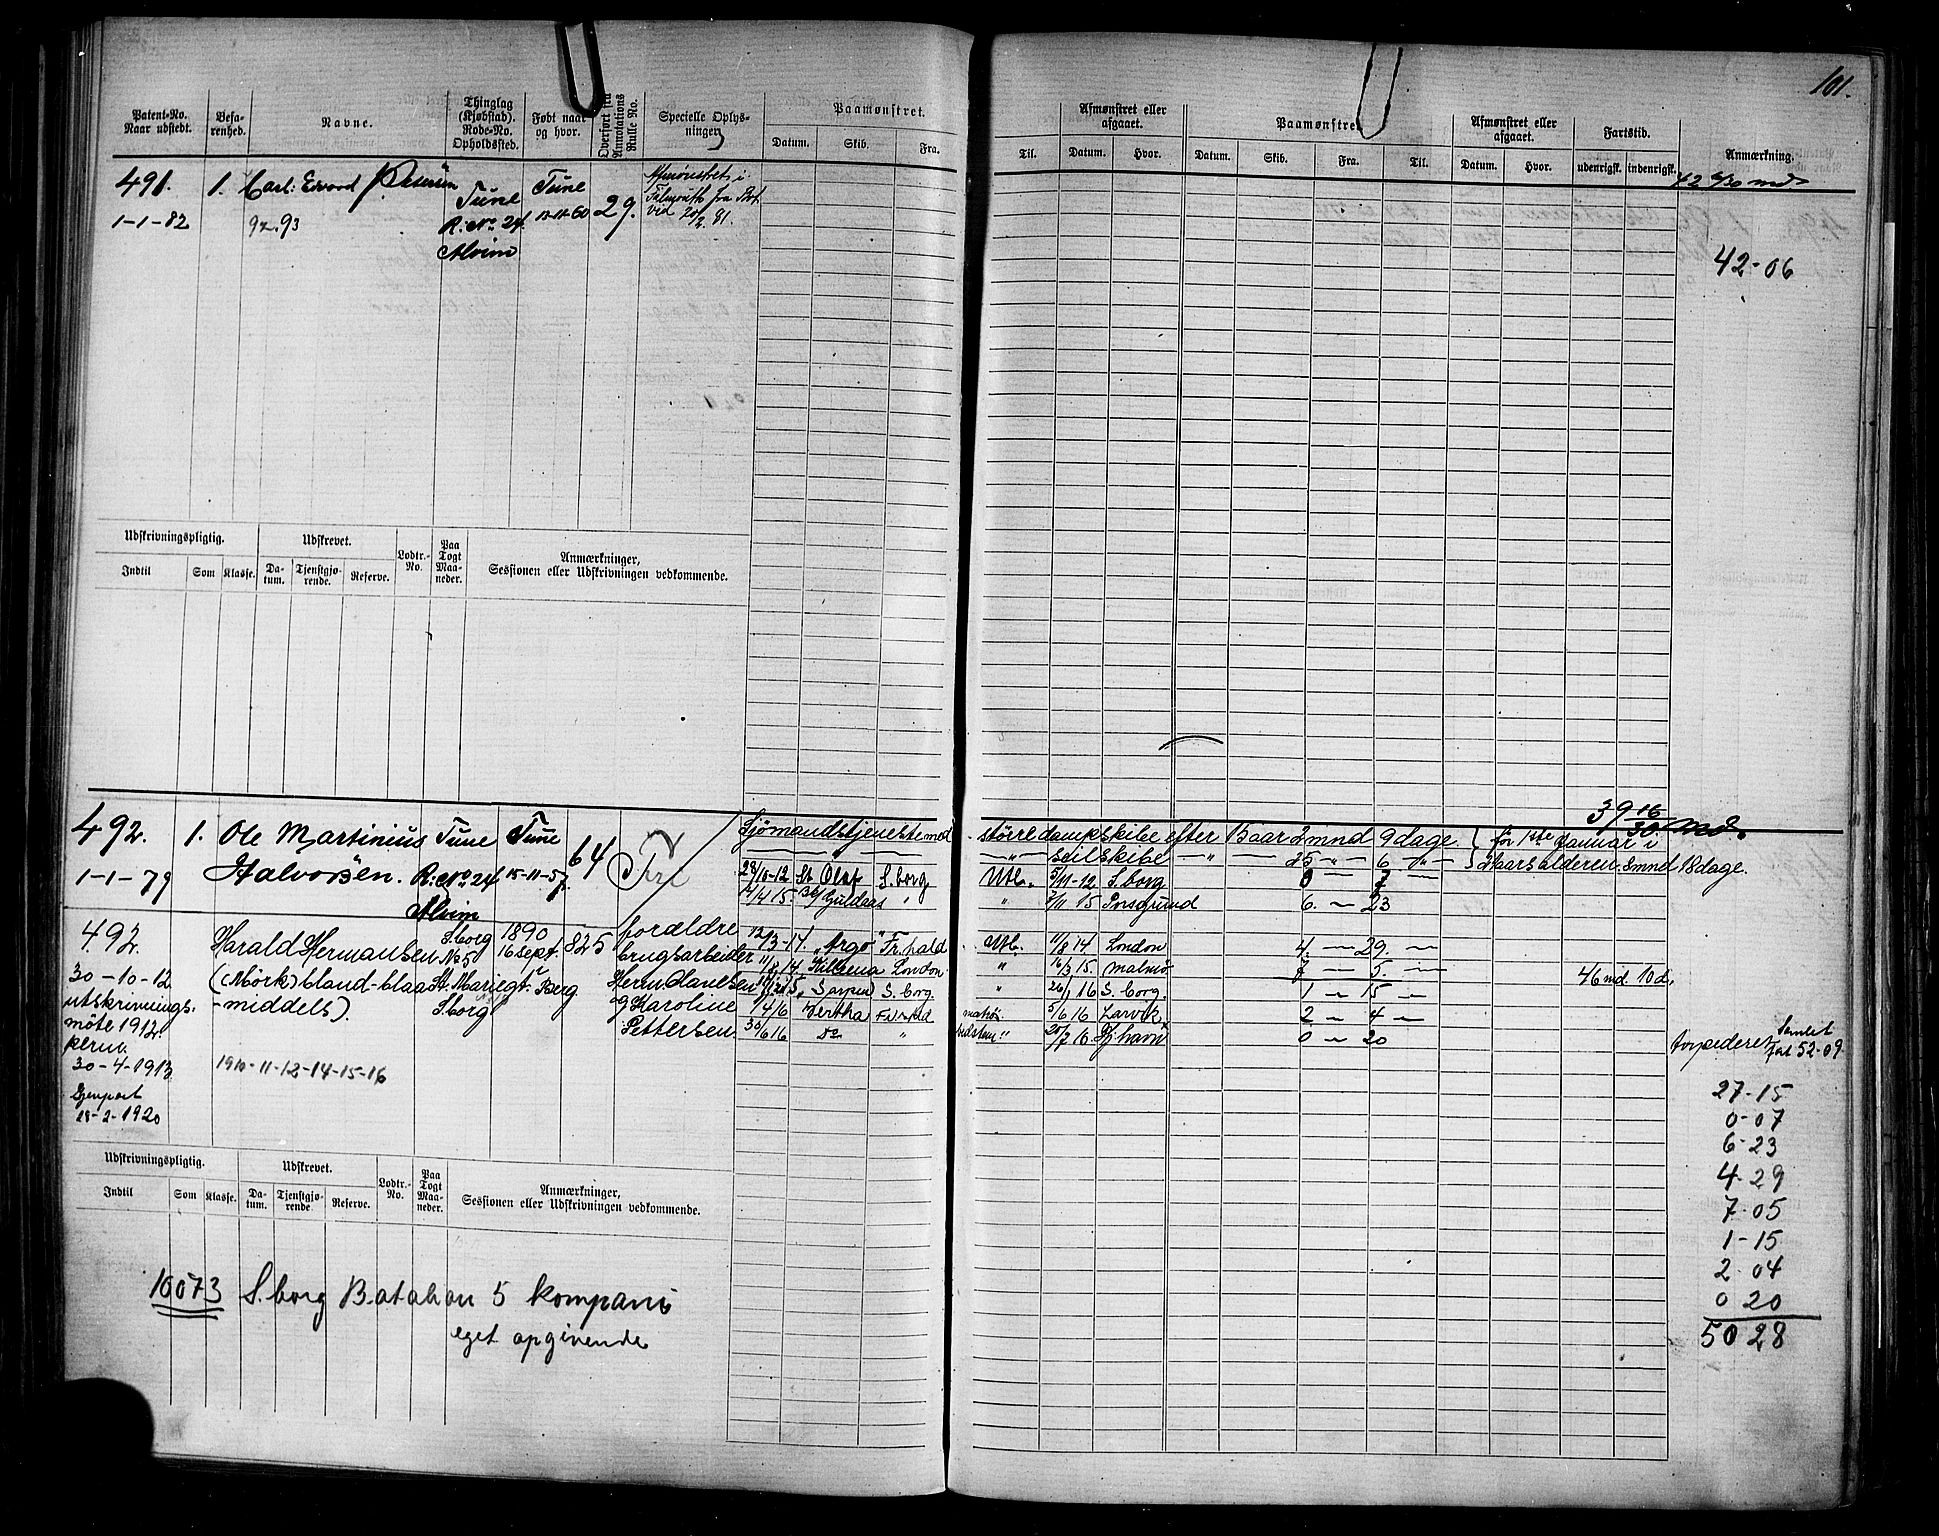 101.
Patent-No. Naar udstedt.
Befa-renhed.
Navne.
Thinglag (Kjøbstad). Rode-No. Opholdssted.
Født naar og hvor.
Overført fra Annotations Rulle No.
Specielle Oplys-ninger.
Paamønstret.
Datum. Skib. Fra. Til.
Afmønstret eller afgaaet.
Datum. Hvor.
Paamønstret.
Datum. Skib. Fra. Til.
Afmønstret eller afgaaet.
Datum. Hvor.
Fartstid.
udenrigsk. indenrigsk.
Anmærkning.
42 6/30 md.
491. 1. Carl Edvard Tune Tune 29. Afmönstret i
1-1-82 92.93 R: No 24. 13-11-60 Falmouth fra
Alvim vid 20/2 81.
42-06
Udskrivningspligtig. Udskrevet. Lodtr.-No. Paa Togt Maa-neder. Anmærkninger, Sessionen eller Udskrivningen vedkommende.
Indtil Som Klasse. Da-tum. Tjenstgjø-rende. Reserve.
39 16/30 Md.
492. 1. Ole Martinius Tune Tune 64 Fri Sjömandstjeneste med större dampskibe efter 15 aar 2 mnd 9 dage. } för 1ste Januar i
1-1-79 Halvorsen. R: No 24 15-11-57. —"— Seilskibe —"— 25 " 6 —"— } aars alderen 8 mnd 18 dage.
Alvim
28/10-12 St Olaf S. borg Utl. 5/11-12 S. borg 0 — 7 —
14/4 15. Guldaas " " 7/11 15 Porsgrund 6. — 23
492. Harald Hermansen S.borg 1890 825 foreldre 12/3-14. "Argo" Fr.hald Utl. 11/8 14 London 4. — 29. —
30-10-12 (Mörk) bland-blaa No 5 16 Sept. brugsarbeider London " 16/3 15. Malmö 7 — 5. —
utskrivnings- -middels). St. Mariegt. Berg Herm. Sarpen S. borg. " 26/1 16 S. borg. 1 — 15 —
möte 1912. S.borg g Karoline 1/4 16 Bertha 5/6 16 Larvik 2 — 4 —
Pettersen. 30/6 16 Do " " 20/7 16. Kj.havn 0 — 20
46 md. 10 d.
30-4-1913 1910-11-12-14-15-16
Gjenpart
18-2-1920
torpederet Samlet fart 52-09
27-15
0-07
6-23
4-29
7-05
1-15
2-04
0 20
50 28
Udskrivningspligtig. Udskrevet. Lodtr.-No. Paa Togt Maa-neder. Anmærkninger, Sessionen eller Udskrivningen vedkommende.
Indtil Som Klasse. Da-tum. Tjenstgjø-rende Reserve.
10073 S. borg Batalion 5 kompani
eget opgivende